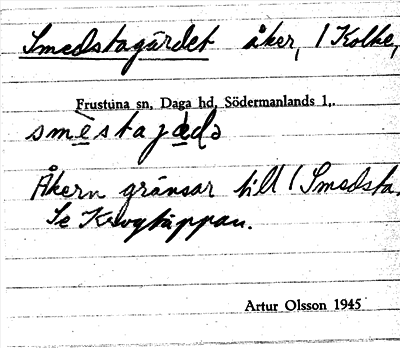 Smedstagärdet åker, 1 Kolbe,
Frustuna sn, Daga hd, Södermanlands l.
smèstajæ̀də
Åkern gränsar till 1 Smedsta.
Se Krogtäppan.
Artur Olsson 1945